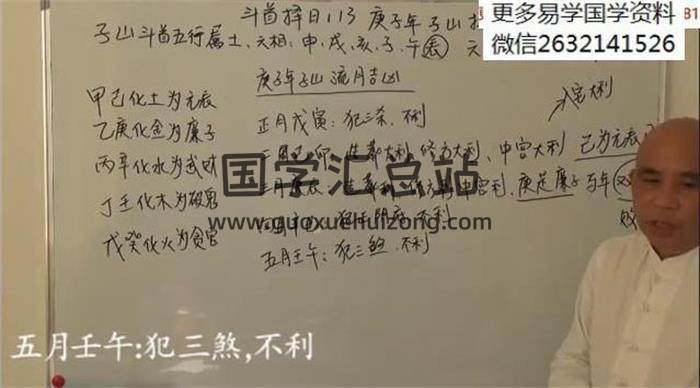 斗首择日113 庚子年子山择
更多易学国学资料
微信2632141526
子山斗首五行属土,六相:申、戌、亥、子、午(辰)
庚子年子山流月吉凶
入宫大利
甲己化土为元辰
正月戊寅:犯三杀,不利
乙庚化金为廉子
修方大利、中宫大利 己为元辰
丙辛化水为武财
庚是廉子与年
丁壬化木为破鬼
不利
戊癸化火为贪官
五月壬午:犯三煞,不利
国学汇总站
www.guoxuehuizong.com
五月壬午:犯三煞,不利